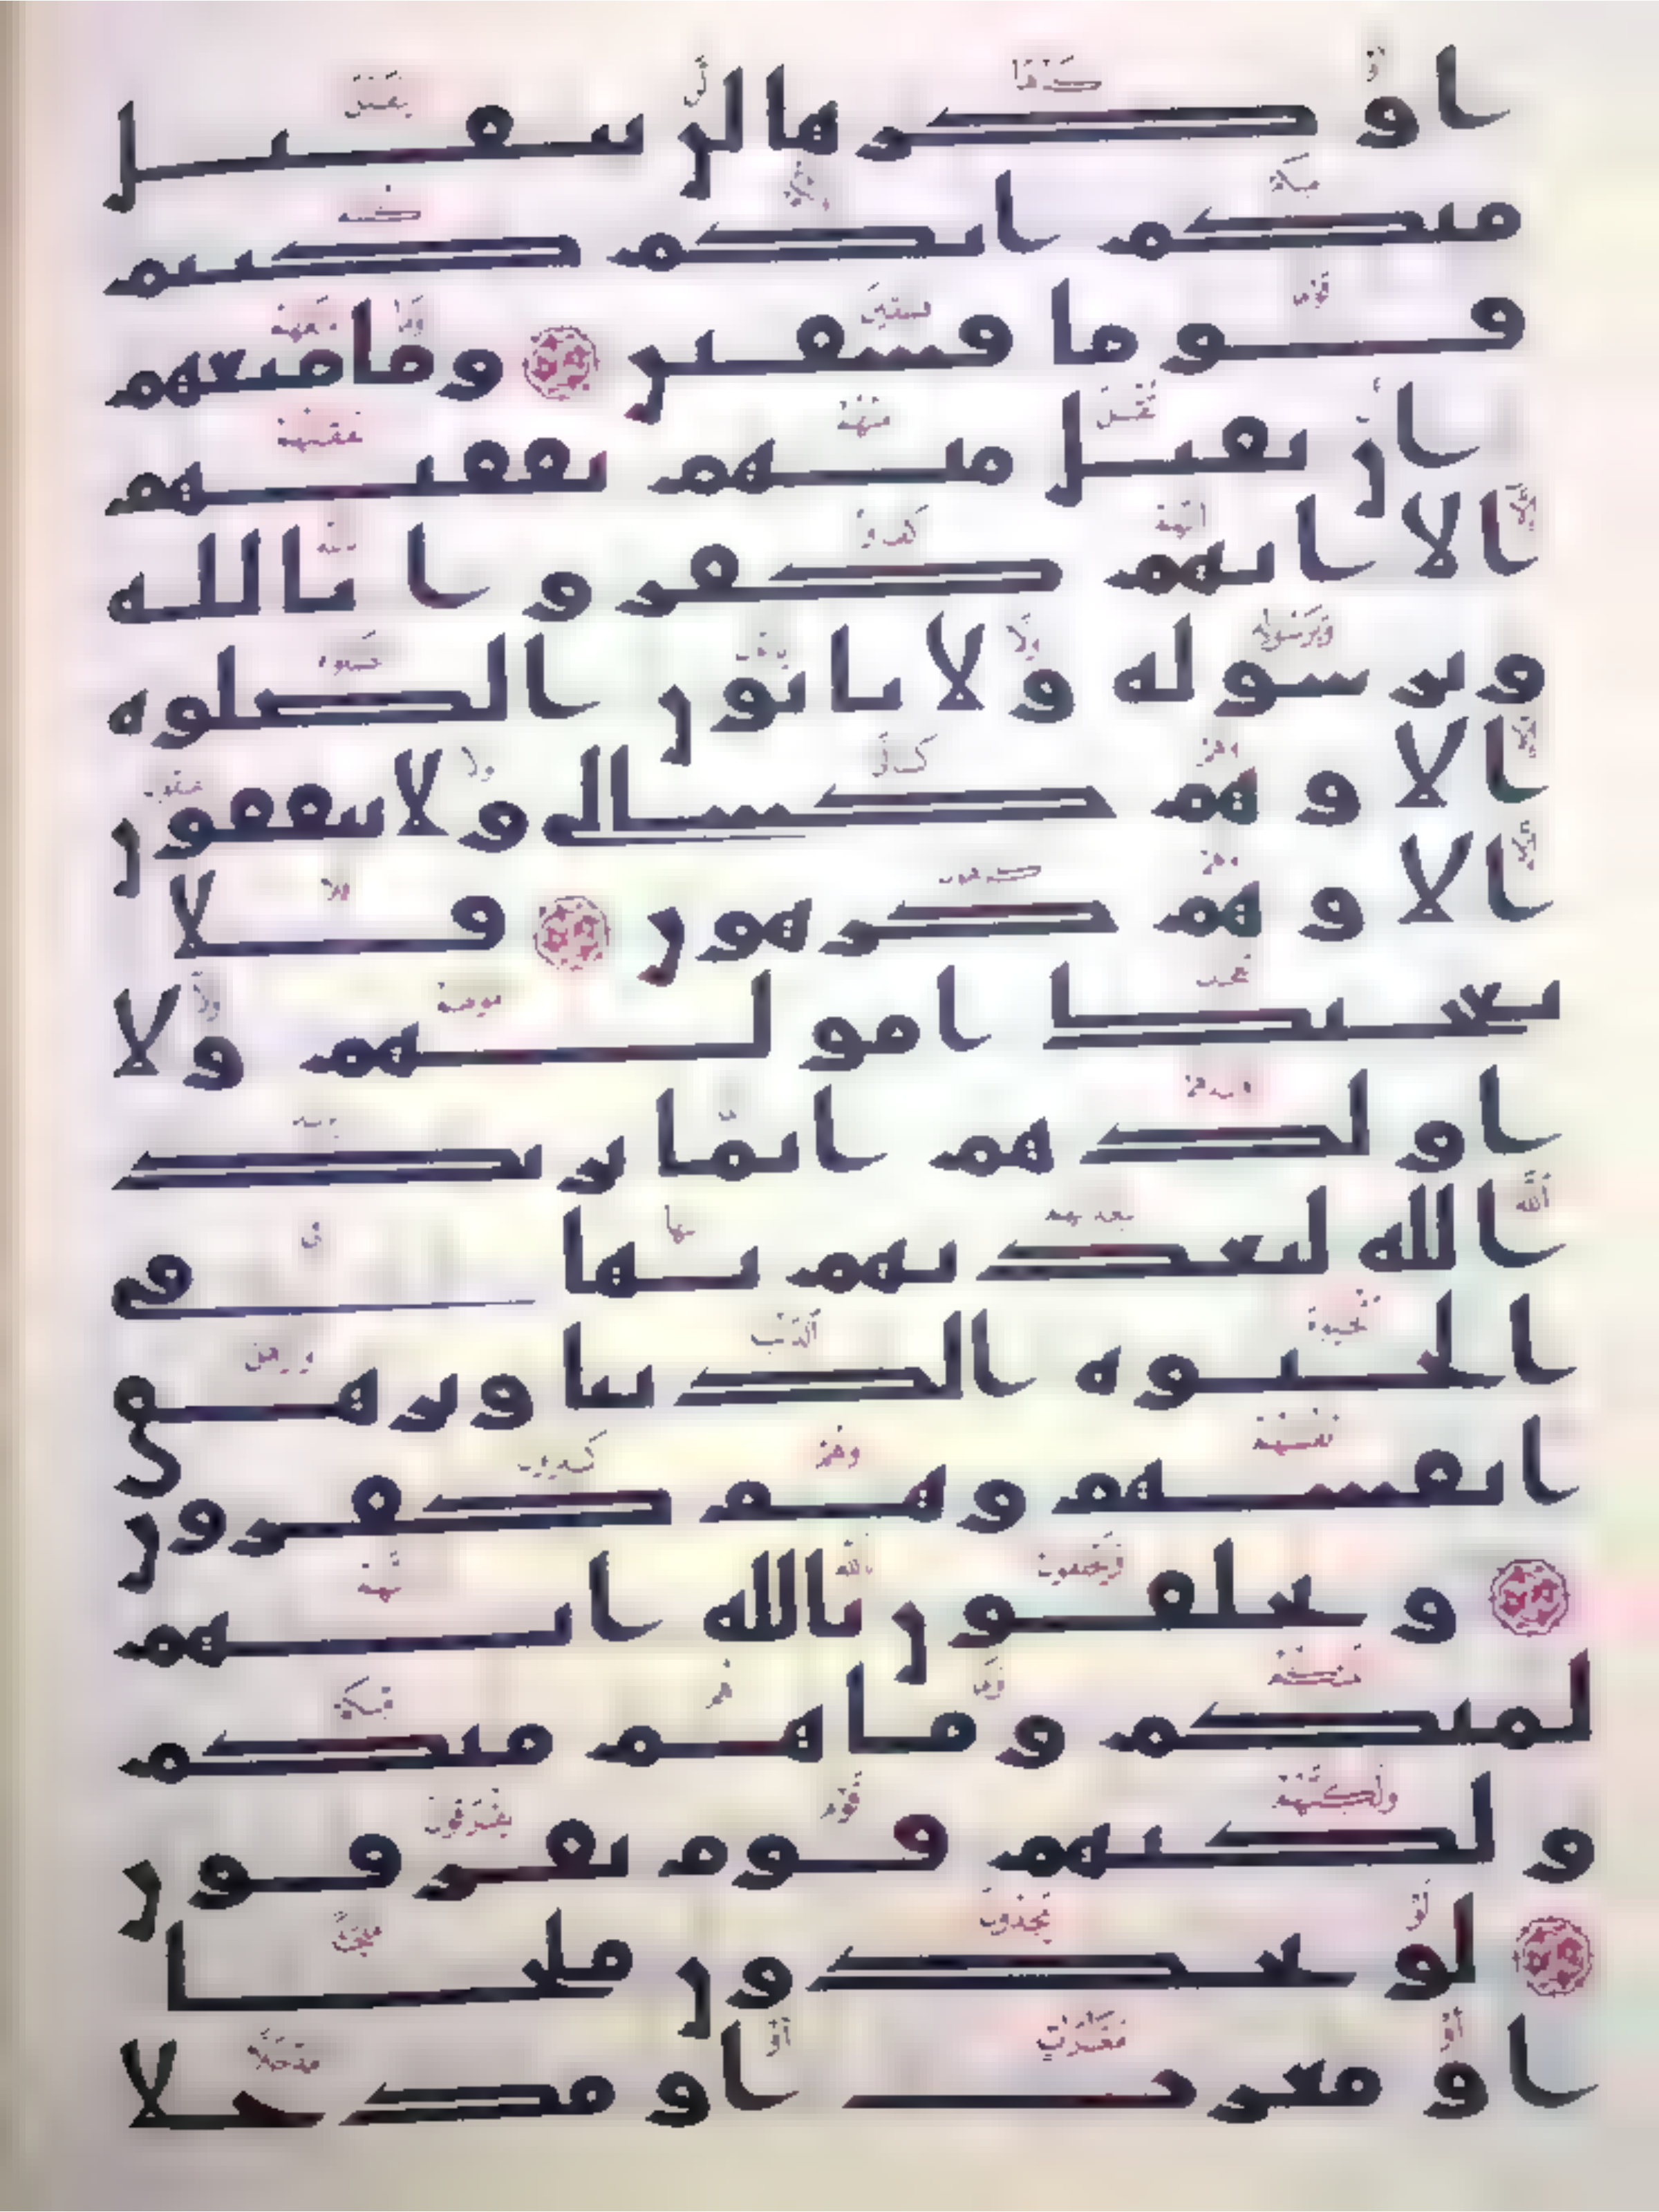 او كرها لن يتقبل
منكم انكم كنتم
قوما فسقين وما منعهم
ان تقبل منهم نفقتهم
الا انهم كفروا بالله
وبرسوله ولا ياتون الصلوه
الا وهم كسالى ولا ينفقون
الا وهم كرهون فلا
تعجبك امولهم ولا
اولدهم انما يريد
الله ليعذبهم بها في
الحيوه الدنيا وتزهق
انفسهم وهم كفرون
ويحلفون بالله انهم
لمنكم وما هم منكم
ولكنهم قوم يفرقون
لو يجدون ملجا
او مغرت او مدخلا